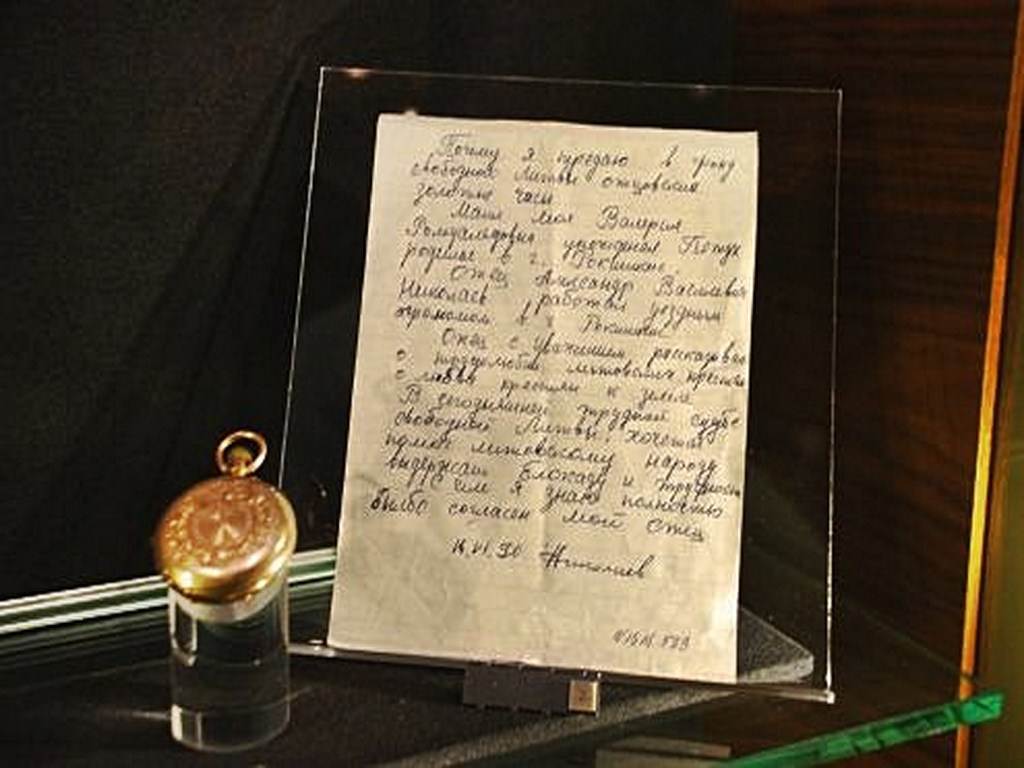 Почему я предаю в фонд
свободной Литвы отцовские
золотые часы
Мать моя Валерия
Ромуальдовна урожденная
родилась в г. Рокишкис.
Отец Александр Васильевич
Николаев работал уездным
агрономом в г. Рокишкис
Отец с уважением рассказывал
о трудолюбии литовских крестьян
о любви крестьян к земле
В сегодняшней трудной судьбе
свободной Литвы, хочется
помочь литовскому народу
выдержать блокаду и трудности
с чем я знаю полностью
был бы согласен мой Отец
16.VI.90 Николаев